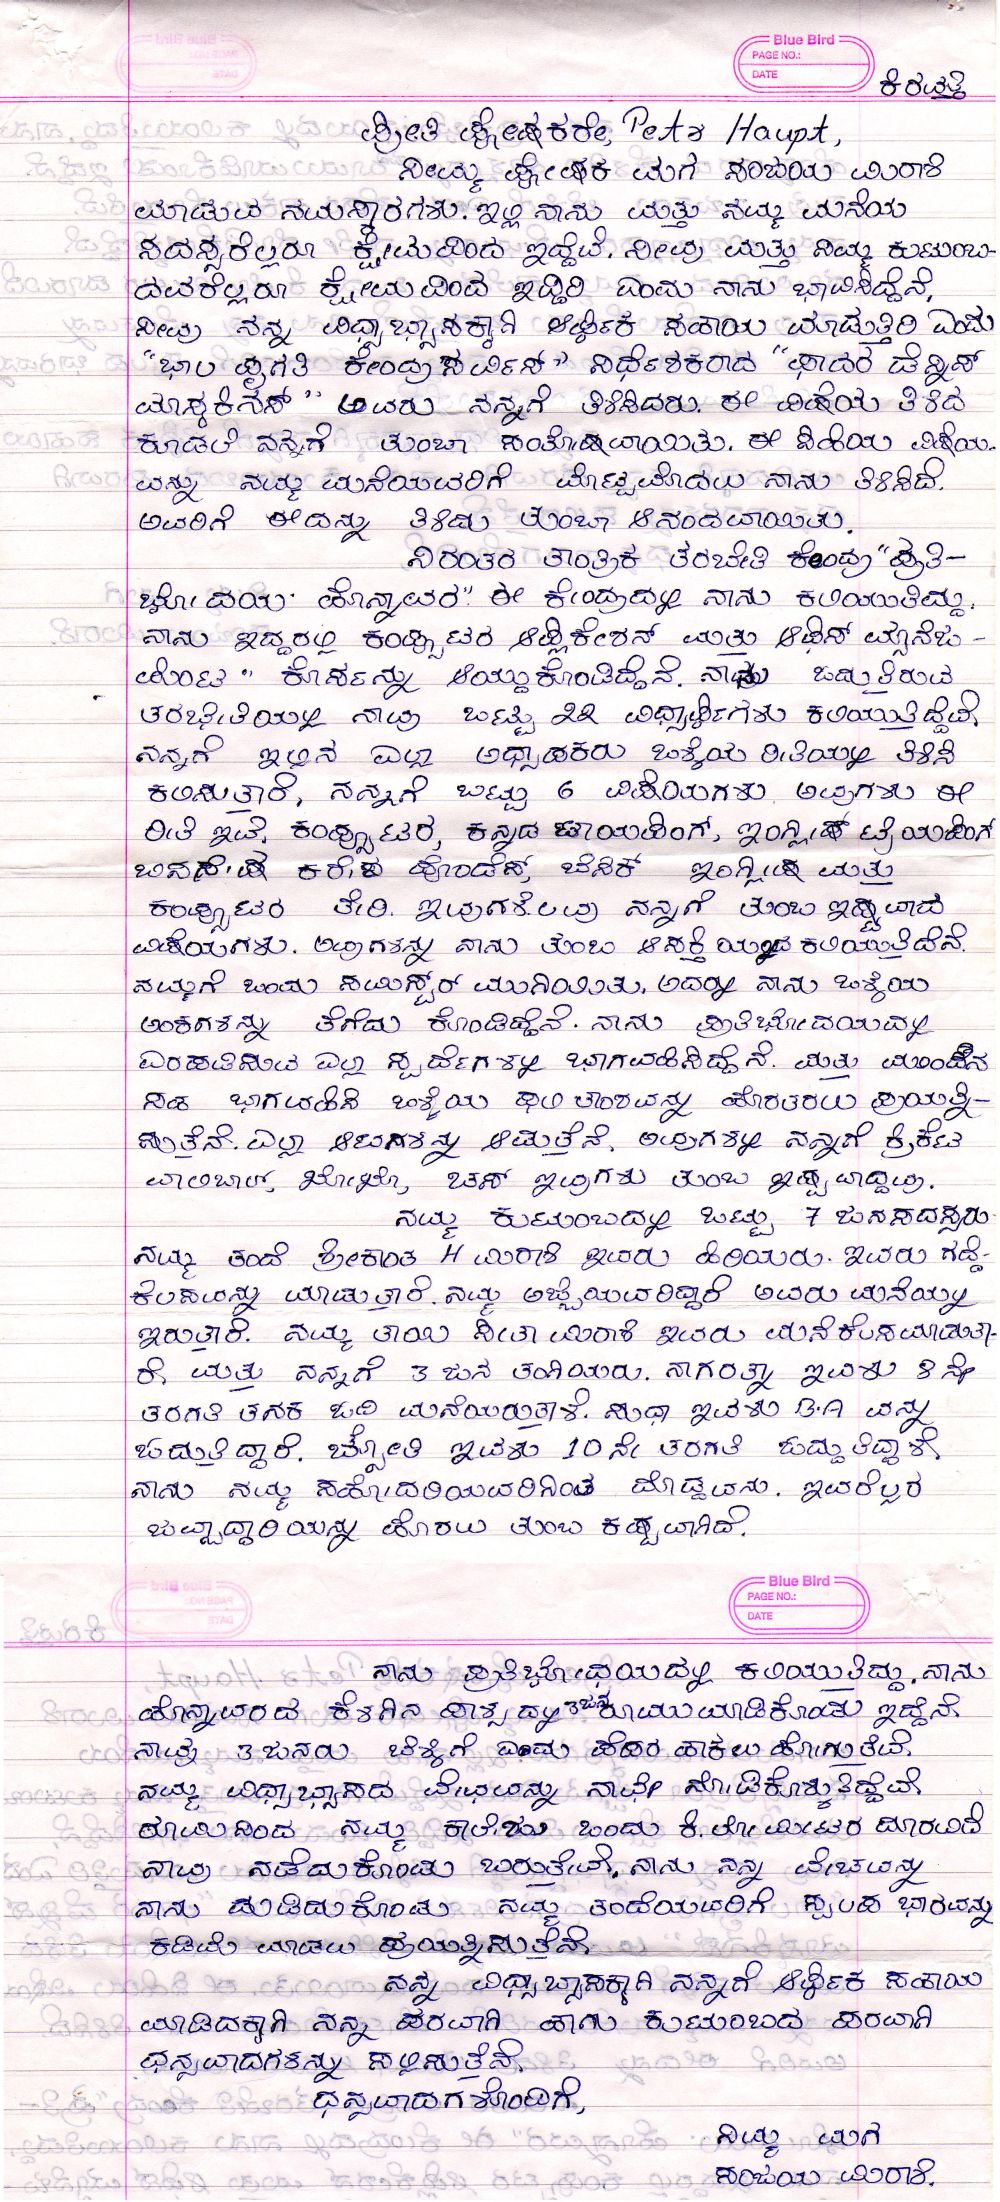 Blue Bird
PAGE NO.:
DATE
ಕಿರವತ್ತಿ
ಪ್ರೀತಿ ಪೋಷಕರೇ, Peta Haupt,
ನಿಮ್ಮ ಪೋಷಕ ಮಗ ಸಂಜಯ ಮಿರಾಶಿ
ಮಾಡುವ ನಮಸ್ಕಾರಗಳು. ಇಲ್ಲಿ ನಾನು ಮತ್ತು ನಮ್ಮ ಮನೆಯ
ಸದಸ್ಯರೆಲ್ಲರೂ ಕ್ಷೇಮದಿಂದ ಇದ್ದೆವೆ. ನೀವು ಮತ್ತು ನಿಮ್ಮ ಕುಟುಂಬ-
ದವರೆಲ್ಲರೂ ಕ್ಷೇಮದಿಂದ ಇದ್ದಿರಿ ಎಂದು ನಾನು ಭಾವಿಸಿದ್ದೆನೆ,
ನೀವು ನನ್ನ ವಿಧ್ಯಾಭ್ಯಾಸಕ್ಕಾಗಿ ಆರ್ಥಿಕ ಸಹಾಯ ಮಾಡುತ್ತಿರಿ ಎಂದು
"ಭಾಲ ಪ್ರಗತಿ ಕೇಂದ್ರ ಸರ್ವಿಸ್" ನಿರ್ಧೇಶಕರಾದ "ಫಾದರ ಡೆನ್ನಿಸ್
ಮಾಸ್ಕರೆನಸ್" ಅವರು ನನ್ನಗೆ ತಿಳಿಸಿದರು. ಈ ವಿಷಯ ತಿಳಿದ
ಕೂಡಲೆ ನನ್ನಗೆ ತುಂಬಾ ಸಂತೋಷವಾಯಿತು. ಈ ಸಿಹಿಯ ವಿಷಯ-
ವನ್ನು ನಮ್ಮ ಮನೆಯವರಿಗೆ ಮೊಟ್ಟಮೊದಲು ನಾನು ತಿಳಿಸಿದೆ.
ಅವರಿಗೆ ಈದನ್ನು ತಿಳಿದು ತುಂಬಾ ಆನಂದವಾಯಿತು.
ನಿರಂತರ ತಾಂತ್ರಿಕ ತರಬೇತಿ ಕೇಂದ್ರ "ಪ್ರತಿ-
ಭೋದಯ ಹೊನ್ನಾವರ" ಈ ಕೇಂದ್ರದಲ್ಲಿ ನಾನು ಕಲಿಯುತಿದ್ದು.
ನಾನು ಇದ್ದರಲ್ಲಿ ಕಂಪ್ಯೂಟರ ಆಪ್ಲಿಕೇಶನ್ ಮತ್ತು ಆಫಿಸ್ ಮ್ಯಾನೆಜ-
ಮೆಂಟ" ಕೊರ್ಸನ್ನು ಆಯ್ದುಕೊಂಡಿದ್ದೆನೆ. ನಾವು ಓದುತ್ತಿರುವ
ತರಭೇತಿಯಲ್ಲಿ ನಾವು ಒಟ್ಟು 22 ವಿಧ್ಯಾರ್ಥಿಗಳು ಕಲಿಯುತ್ತಿದ್ದೆವೆ.
ನನ್ನಗೆ ಇಲ್ಲಿನ ಎಲ್ಲಾ ಅಧ್ಯಾಪಕರು ಒಳ್ಳೆಯ ರೀತಿಯಲ್ಲಿ ತಿಳಿಸಿ
ಕಲಿಸುತ್ತಾರೆ, ನನ್ನಗೆ ಒಟ್ಟು 6 ವಿಷಯಗಳು ಅವುಗಳು ಈ
ರೀತಿ ಇವೆ. ಕಂಪ್ಯೂಟರ, ಕನ್ನಡ ಟಾಯಪಿಂಗ್, ಇಂಗ್ಲೀಷ್ ಟೈಯಪಿಂಗ
ಬಿಸನೇಷ ಕರೇಸ ಪೊಂಡೆನ್ಸ್, ಬೆಸಿಕ್ ಇಂಗ್ಲೀಷ ಮತ್ತು
ಕಂಪ್ಯೂಟರ ತೇರಿ. ಇವುಗಳೆಲ್ಲವು ನನ್ನಗೆ ತುಂಬ ಇಷ್ಟವಾದ
ವಿಷಯಗಳು. ಅವುಗಳನ್ನು ನಾನು ತುಂಬ ಆಸಕ್ತಿಯಿಂದ ಕಲಿಯುತ್ತಿದೆನೆ.
ನಮ್ಮಗೆ ಒಂದು ಸಮಿಸ್ಟರ್ ಮುಗಿಯಿತು. ಅದರಲ್ಲಿ ನಾನು ಒಳ್ಳೆಯ
ಅಂಕಗಳನ್ನು ತೆಗೆದು ಕೊಂಡಿದ್ದೆನೆ. ನಾನು ಪ್ರತಿಭೋದಯದಲ್ಲಿ
ಏರಪಡಿಸುವ ಎಲ್ಲಾ ಸ್ಪರ್ದೆಗಳಲ್ಲಿ ಭಾಗವಹಿಸಿದ್ದೆನೆ. ಮತ್ತು ಮುಂದಿನ
ಸಹ ಭಾಗವಹಿಸಿ ಒಳ್ಳೆಯ ಫಲಿತಾಂಶವನ್ನು ಹೊರತರಲು ಪ್ರಯತ್ನಿ-
ಸುತ್ತೆನೆ. ಎಲ್ಲಾ ಆಟಗಳನ್ನು ಆಡುತ್ತೆನೆ, ಅವುಗಳಲ್ಲಿ ನನ್ನಗೆ ಕ್ರಿಕೆಟ
ವಾಲಿಬಾಲ್, ಖೋಖೋ, ಚೆಸ್ ಇವುಗಳು ತುಂಬ ಇಷ್ಟವಾದ್ದವು.
ನಮ್ಮ ಕುಟುಂಬದಲ್ಲಿ ಒಟ್ಟು 7 ಜನಸದಸ್ಯರು.
ನಮ್ಮ ತಂದೆ ಶ್ರೀಕಾಂತ H ಮಿರಾಶಿ ಇವರು ಹಿರಿಯರು. ಇವರು ಗದ್ದೆ-
ಕೆಲಸವನ್ನು ಮಾಡುತ್ತಾರೆ. ನಮ್ಮ ಅಜ್ಜಿಯವರಿದ್ದಾರೆ ಅವರು ಮನೆಯಲ್ಲಿ
ಇರುತ್ತಾರೆ. ನಮ್ಮ ತಾಯಿ ಸೀತಾ ಮಿರಾಶಿ ಇವರು ಮನೆಕೆಲಸಮಾಡುತಾ-
ರೆ, ಮತ್ತು ನನ್ನಗೆ 3 ಜನ ತಂಗಿಯರು. ನಾಗರತ್ನಾ ಇವಳು 8 ನೇ
ತರಗತಿ ತನಕ ಓದಿ ಮನೆಯಿರುತ್ತಾಳೆ. ಸುಧಾ ಇವಳು B.A ವನ್ನು
ಓದುತ್ತಿದ್ದಾರೆ. ಜ್ಯೋತಿ ಇವಳು 10 ನೇ ತರಗತಿ ಓದ್ದುತಿದ್ದಾಳೆ,
ನಾನು ನಮ್ಮ ಸಹೋದರಿಯವರಿಗಿಂತ ದೊಡ್ಡವನು. ಇವರೆಲ್ಲರ
ಜವ್ಬಾದ್ಧಾರಿಯನ್ನು ಹೊರಲು ತುಂಬ ಕಷ್ಟವಾಗಿದೆ.
Blue Bird
PAGE NO.:
DATE
ನಾನು ಪ್ರತಿಭೋಧಯದಲ್ಲಿ ಕಲಿಯುತಿದ್ದು. ನಾನು
ಹೊನ್ನಾವರದ ಕೆಳಗಿನ ಪಾಳ್ಯದಲ್ಲಿ 3ಜನ ರೂಮುಮಾಡಿಕೊಂಡು ಇದ್ದೆನೆ.
ನಾವು 3 ಜನರು ಬೆಳ್ಳಿಗೆ ಎಂದು ಪೆಪರ ಹಾಕಲು ಹೋಗುತ್ತೆವೆ.
ನಮ್ಮ ವಿಧ್ಯಾಭ್ಯಾಸದ ವೇಚವನ್ನು ನಾವೇ ನೋಡಿಕೊಳ್ಳುತಿದ್ದೆವೆ.
ರೂಮಿನಿಂದ ನಮ್ಮ ಕಾಲೇಜು ಒಂದು ಕಿ.ಲೋಮೀಟರ ದೂರವಿದೆ
ನಾವು ನಡೆದುಕೊಂಡು ಬರುತ್ತೇವೆ. ನಾನು ನನ್ನ ವೇಚವನ್ನು
ನಾನು ದುಡಿದುಕೊಂಡು ನಮ್ಮ ತಂದೆಯವರಿಗೆ ಸ್ವಲಪ ಭಾರವನ್ನು
ಕಡಿಮೆ ಮಾಡಲು ಪ್ರಯತ್ನಿಸುತ್ತೆನೆ.
ನನ್ನ ವಿಧ್ಯಾಬ್ಯಾಸಕ್ಕಾಗಿ ನನ್ನಗೆ ಆರ್ಥಿಕ ಸಹಾಯ
ಮಾಡಿದಕ್ಕಾಗಿ ನನ್ನ ಪರವಾಗಿ ಹಾಗು ಕುಟುಂಬದ ಪರವಾಗಿ
ಧನ್ಯವಾದಗಳನ್ನು ಸಲ್ಲಿಸುತ್ತೆನೆ.
ಧನ್ಯವಾದಗಳೊಂದಿಗೆ,
ನಿಮ್ಮ ಮಗ
ಸಂಜಯ ಮಿರಾಶಿ.